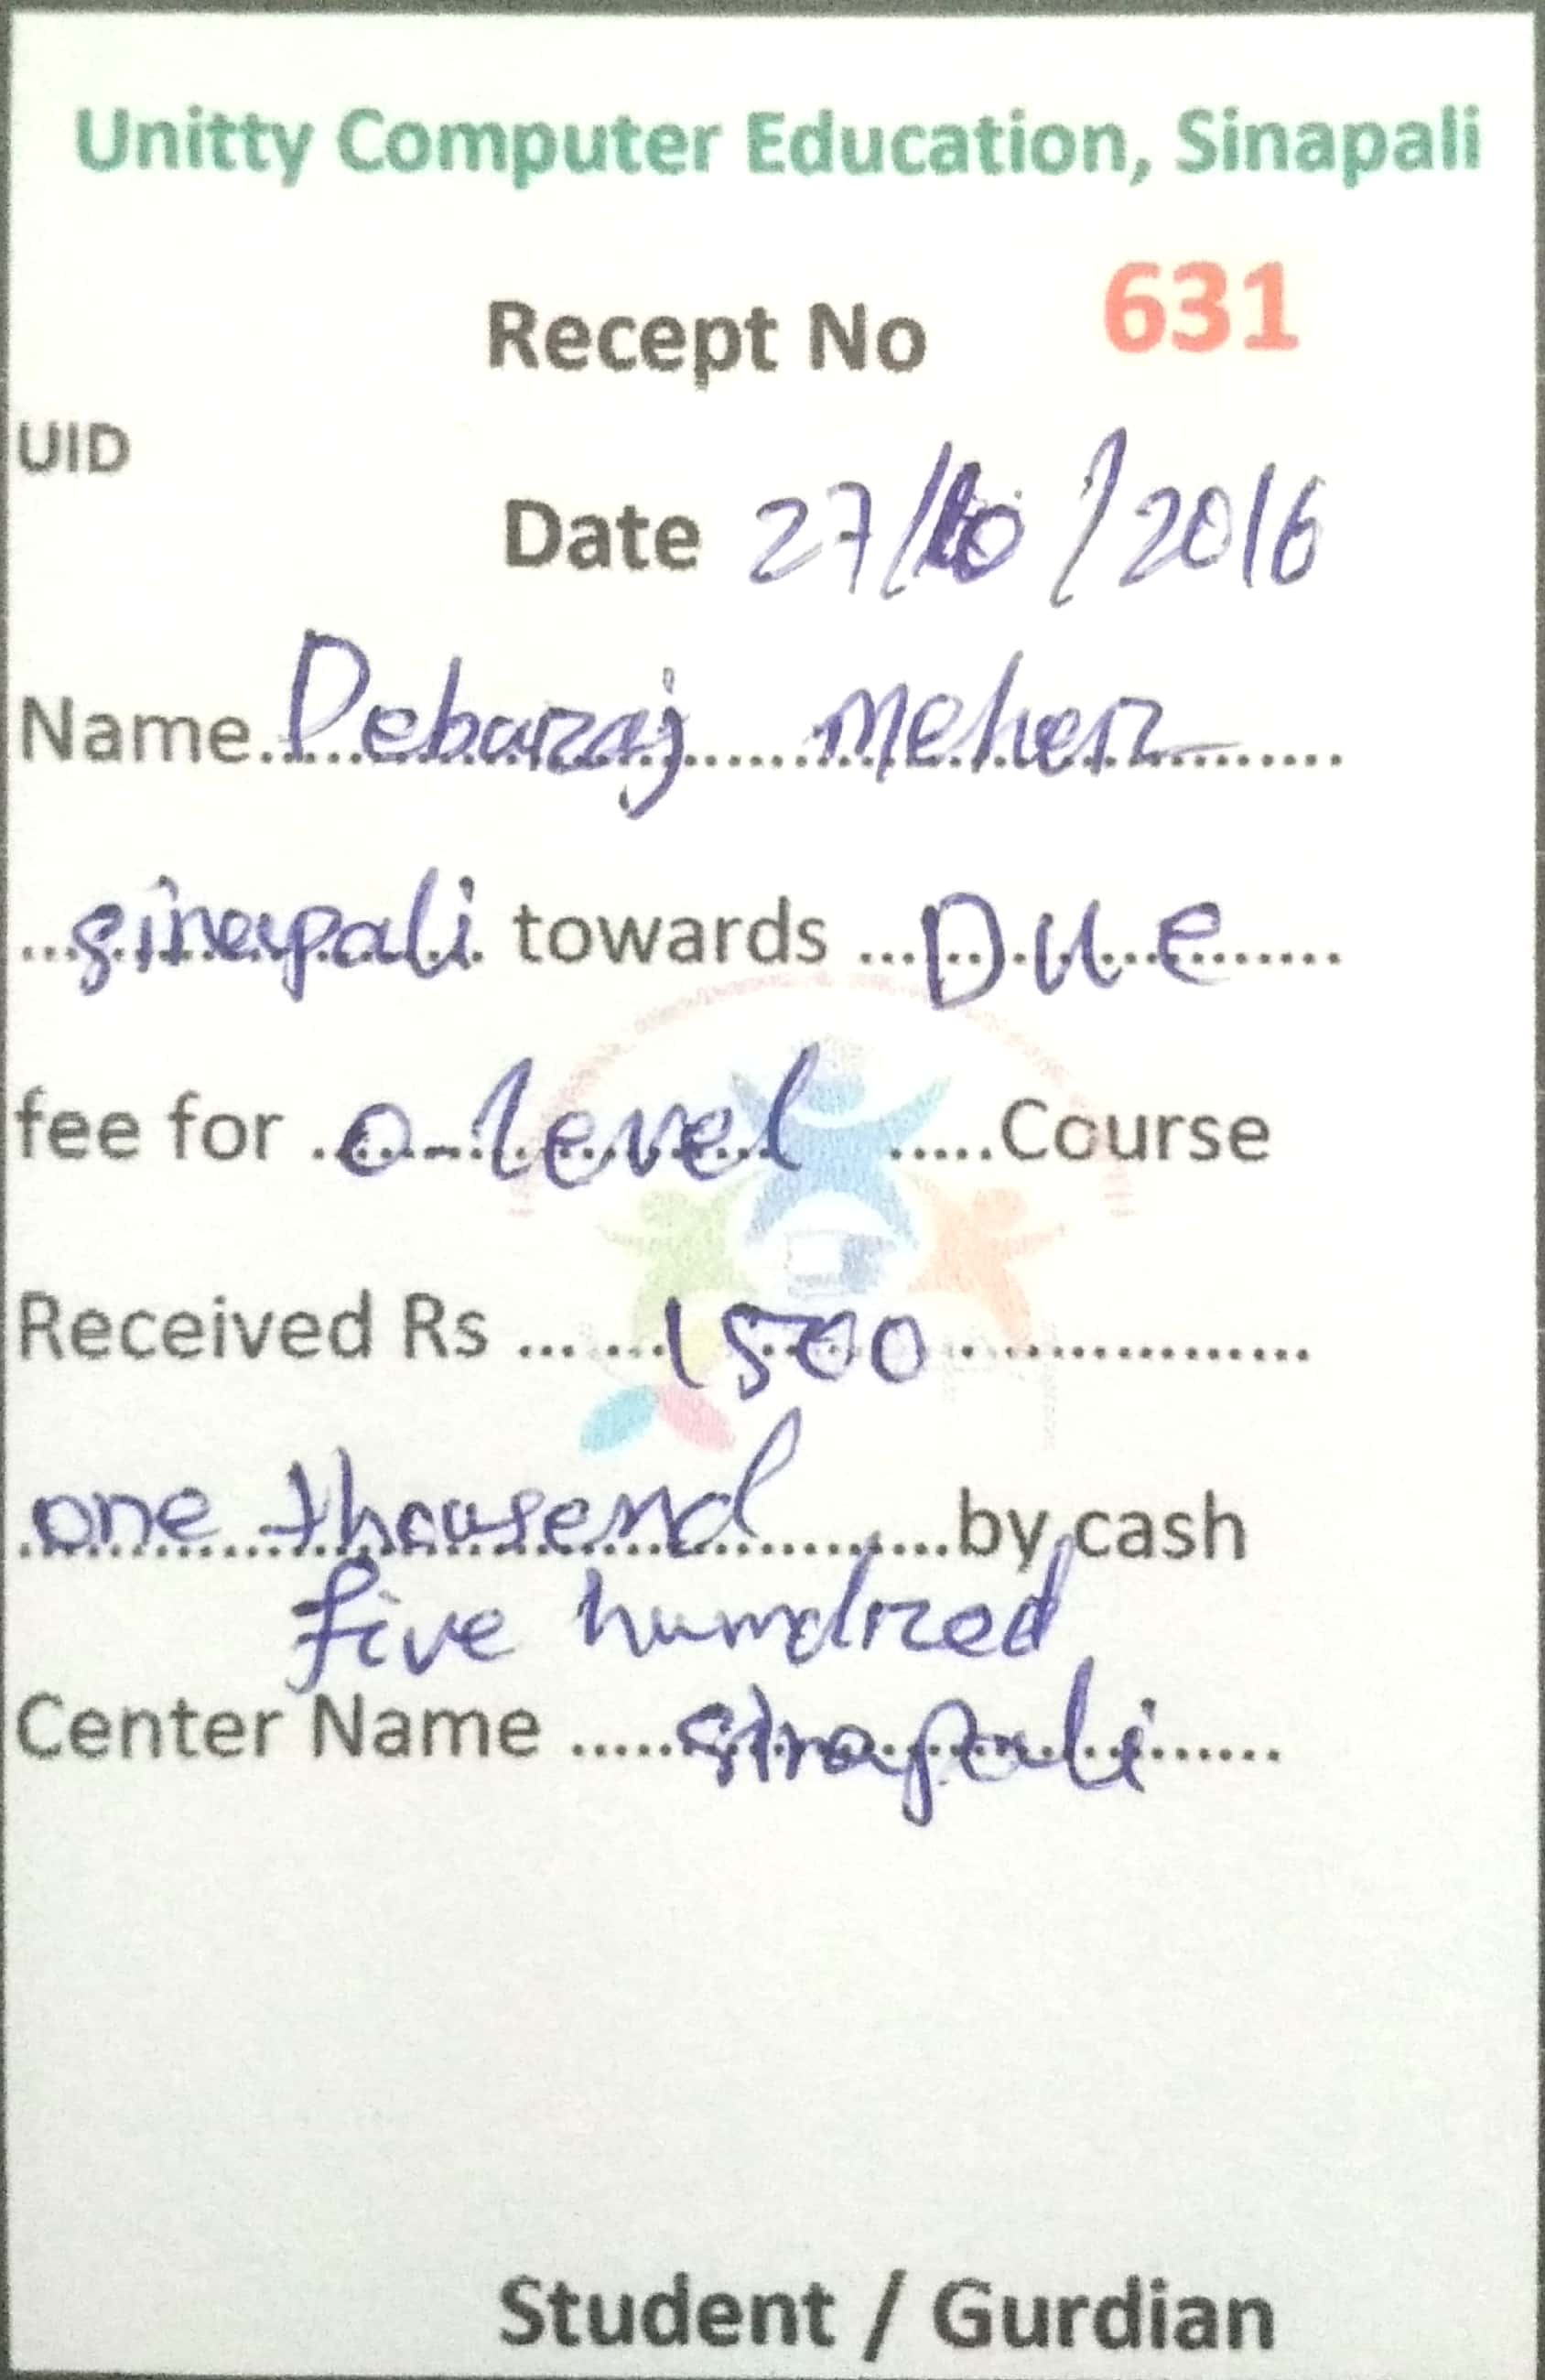 Unitty Computer Education, Sinapali
Recept No 631
UID
Date 27/10/2016
Name Debaraj meher
sinapali towards Due
fee for o-level Course
Received Rs 1500
one thousend by cash
five hundred
Center Name sinapali
Student / Gurdian